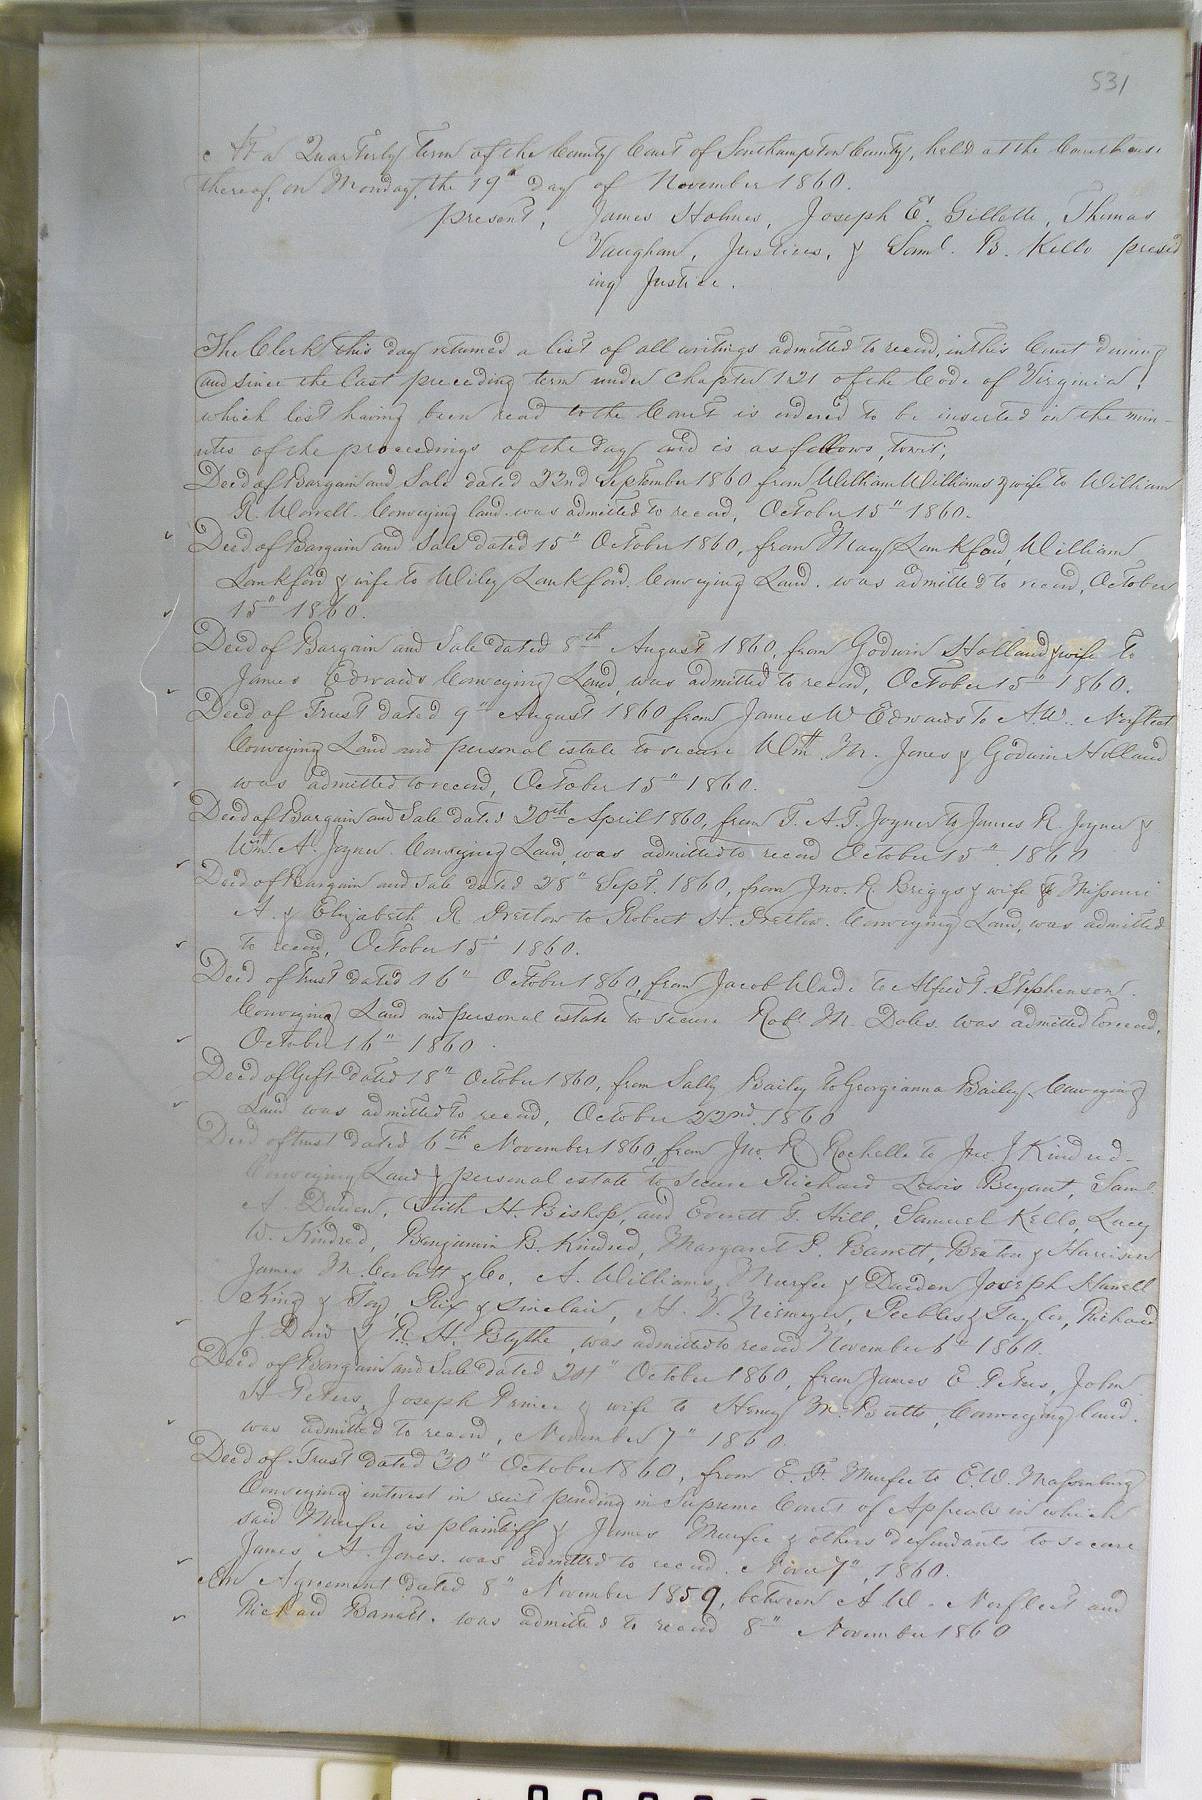 531
At a Quarterly term of the County Court of Southampton County, held at the Courthouse
thereof, on Monday, the 19" day of November 1860.
present, James Holmes, Joseph E. Gillette, Thomas
Vaughan, Justices, & Saml. B. Kello presid
ing Justice.
The Clerk this day returned a list of all writings admitted to record, in this Court during
and since the last preceding term under chapter 121 of the Code of Virginia,
which list having been read to the Court is ordered to be inserted in the min-
utes of the proceedings of the day and is as follows, towit;
Deed of Bargain and Sale dated 22nd September 1860 from William Williams & wife to William
R. Worrell. Conveying land. was admitted to record, October 15" 1860.
Deed of Bargain and Sale dated 15" October 1860, from Mary Lankford, William
Lankford & wife to Wiley Lankford. Conveying Land. was admitted to record, October
15" 1860.
Deed of Bargain and Sale dated 8th August 1860, from Godwin Holland & wife to
James Edwards Conveying Land, was admitted to record, October 15" 1860.
Deed of Trust dated 9" August 1860 from James W Edwards to A.W. Norfleet
Conveying Land and personal estate to secure Wm. M. Jones & Godwin Holland
was admitted to record, October 15" 1860.
Deed of Bargain and Sale dated 20th April 1860, from T. A. T. Joyner to James R. Joyner &
Wm. A. Joyner. Conveying Land, was admitted to record October 15" 1860
Deed of Bargain and Sale dated 28" Sept. 1860, from Jno. R. Briggs & wife & Missouri
A. & Elizabeth R. Pretlow to Robert H. Pretlow. Conveying Land, was admitted
to record, October 15" 1860.
Deed of trust dated 16" October 1860, from Jacob Wade to Alfred T. Stephenson.
Conveying Land and personal estate to secure Robt. M. Doles. was admitted to record,
October 16" 1860.
Deed of Gift dated 18" October 1860, from Sally Bailey to Georgianna Bailey. Conveying
Land was admitted to record, October 22nd 1860
Deed of trust dated 6th November 1860, from Jno. R Rochelle to Jno. J Kindred-
Conveying Land & personal estate to secure Richard Lewis Bryant, Saml.
A. Darden, Stith H. Bishop, and Everett T. Hill, Samuel Kello, Lucy
W. Kindred, Benjamin B. Kindred, Margaret P. Barrett, Beaton & Harrison
James M. Corbett & Co. A. Williams, Murfee & Darden Joseph Harrell
King & Toy, Rix & Sinclair, H. V. Niemeyer, Peebles & Taylor, Richard
J. Darr & R. H. Blythe, was admitted to record November 6" 1860.
Deed of Bargain and Sale dated 24" October 1860, from James E. Peters, John
H Peters, Joseph Prince & wife to Henry M. Butts, Conveying land.
was admitted to record, November 7" 1860.
Deed of Trust dated 30" October 1860, from E. F. Murfee to E. W. Massenburg
Conveying interest in suit pending in Supreme Court of Appeals in which
said Murfee is plaintiff & James Murfee & others defendants to secure
James A. Jones. was admitted to record. Novr 7", 1860.
An Agreement dated 8" November 1859, between A W. Norfleet and
Richard Barrett. was admitted to record 8" November 1860